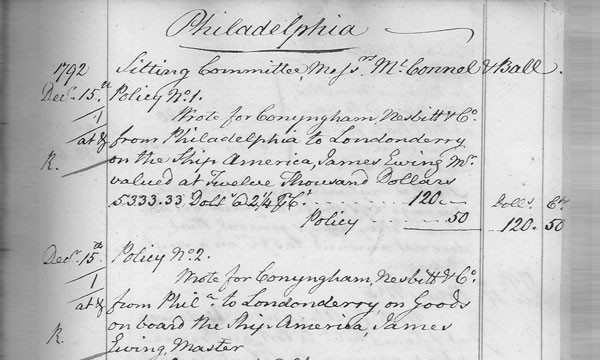 Philadelphia
1792 Sitting Committee, Messrs. McConnel & Ball.
Decr. 15th Policy No. 1.
1 Wrote for Conyngham, Nesbitt & Co.
at & from Philadelphia to Londonderry
R. on the Ship America, James Ewing Mr.
valued at Twelve Thousand Dollars
5333.33 Dolls. @ 2¼ P Ct. 120.— Dolls. Cts
Policy 50 120.50
Decr. 15th Policy No. 2.
1 Wrote for Conyngham, Nesbitt & Co.
at & from Phila. to Londonderry on Goods
on board the Ship America, James
R. Ewing, Master